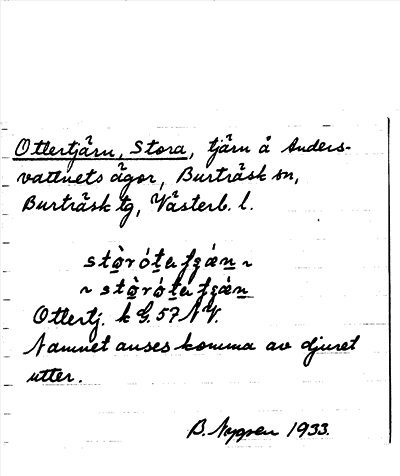 Ottertjärn, Stora, tjärn å Anders-
vattnets ägor, Burträsk sn,
Burträsk tg, Västerb. l.
Ottertj. k G. 57 NV.
Namnet anses komma av djuret
utter.
B. 1933.